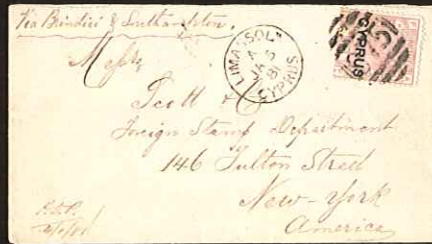 Via Brindisi & Southampton.
LIMASSOL
A
JA 5
81
CYPRUS
CYPRUS
Messrs
Scott & Co
Foreign Stamp Department
146 Fulton Street
New-York
America